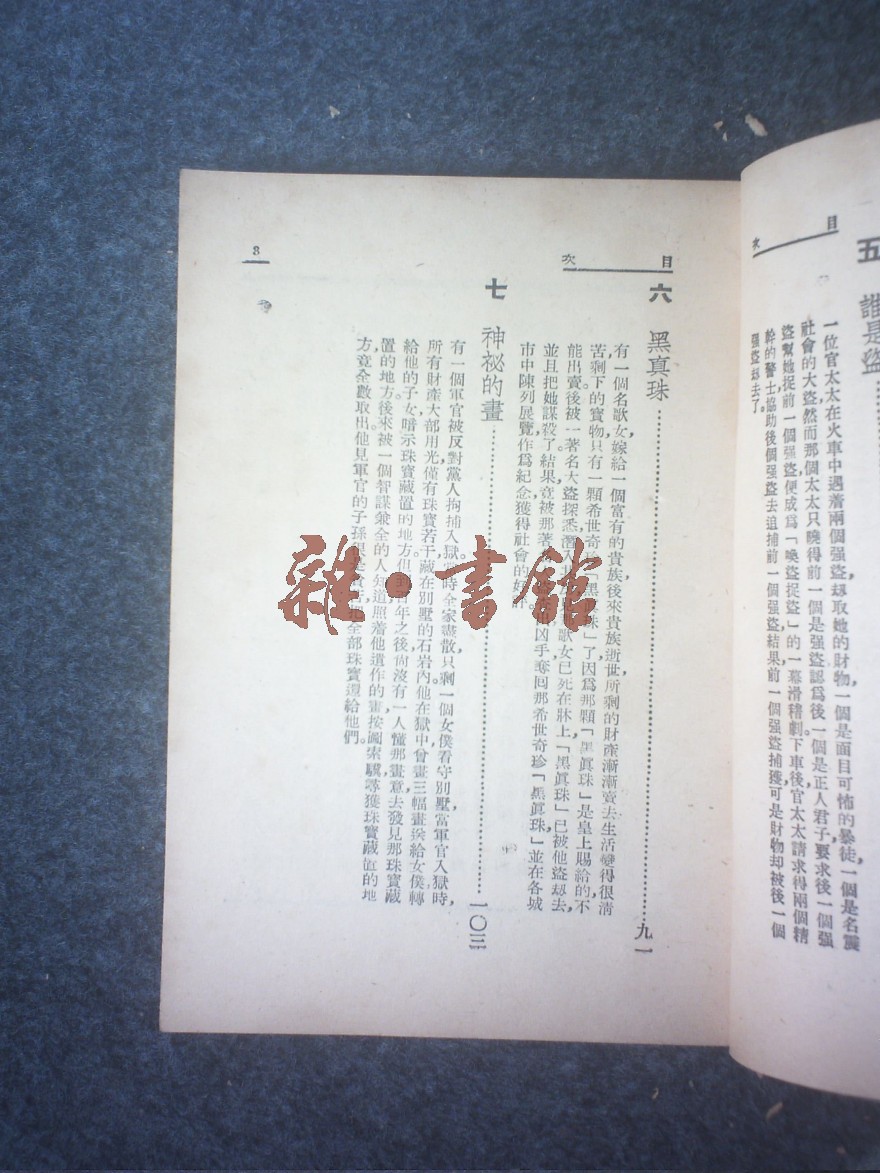 目次
五 誰是盜
一位官太太在火車中遇着兩個强盜刼取她的財物,一個是面目可怖的暴徒,一個是名震
社會的大盜,然而那個太太只曉得前一個是强盜,認爲後一個是正人君子,要求後一個强
盜幫她捉前一個强盜,便成爲「喚盜捉盜」的一幕滑稽劇。下車後,官太太請求得兩個精
幹的警士,協助後個强盜去追捕前一個强盜,結果前一個强盜捕獲,可是財物却被後一個
强盜刼去了。
目次
六 黑真珠……九一
有一個名歌女,嫁給一個富有的貴族,後來貴族逝世,所剩的財產漸漸賣去,生活變得很清
苦,剩下的寶物,只有一顆希世奇珍「黑眞珠」了,因爲那顆「黑眞珠」是皇上賜給的,不
能出賣,後被一著名大盜探悉,潛入歌女已死在牀上,「黑眞珠」已被他盜刼去,
並且把她謀殺了,結果竟被那著凶手奪囘那希世奇珍「黑眞珠」,並在各城
市中陳列展覽,作爲紀念,獲得社會的好評。
七 神祕的畫……一〇三
有一個軍官,被反對黨人拘捕入獄。時全家盡散,只剩一個女僕看守別墅,當軍官入獄時,
所有財產大部用光,僅有珠寶若干,藏在別墅的石岩內。他在獄中,曾畫三幅畫,送給女僕轉
給他的子女,暗示珠寶藏置的地方。但年之後,尙沒有一人懂那畫意,去發見那珠寶藏
置的地方,後來被一個智謀兼全的人知道,照着他遺作的畫,按圖索驥,尋獲珠寶藏置的地
方,竟全數取出,他見軍官的子孫很全部珠寶還給他們。
8
雜·書館